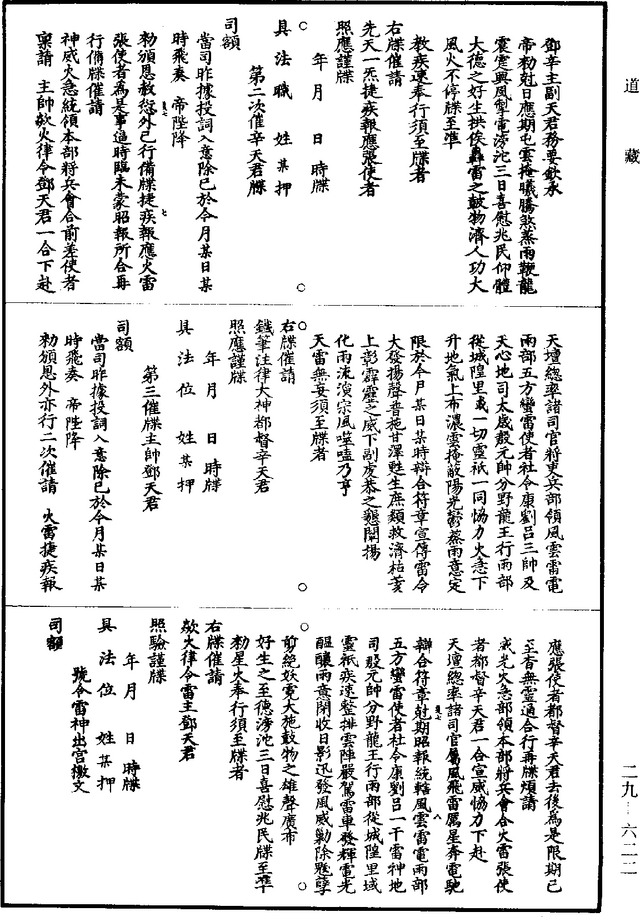 道藏
鄧辛主副天君務要欽承
帝勑尅日應期屯雲掩曦騰煞蒸雨鞭龍
震霆興風掣電滂沱三日喜慰兆民仰體
大德之好生拱俟轟雷之鼓物濟人功大
風火不停牒至準
教疾速奉行須至牒者
右牒催請
先天一炁捷疾報應張使者
照應謹牒
年 月 日 時牒
具 法 職 姓 某 押
第二次催辛天君牒
司額
當司昨據投詞入意除已於今月某日某
時飛奏 帝陛降
勑頒恩赦愆外已行備牒捷疾報應火雷
張使者爲是事迫時臨未蒙昭報所合再
行備牒催請
神威火急統領本部將兵會合前差使者
稟請 主帥欻火律令鄧天君一合下赴
天壇總率諸司官將吏兵部領風雲雷電
兩部五方蠻雷使者社令康劉呂三帥及
天心地司太歲殷元帥分野龍王行雨部
從城隍里域一切靈祇一同恊力火急下
升地氣上布濃雲掩蔽陽光鬱蒸雨意定
限於今月某日某時辯合符章宣傳雷令
大發揚聲普施甘澤甦生庶類救濟枯荄
上彰霹靂之威下副虔恭之懇闡揚
化雨流演宗風噬嗑乃亨
天雷無妄須至牒者
右牒催請
鐵筆注律大神都督辛天君
照應謹牒
年 月 日 時牒
具 法 位 姓 某 押
第三催牒主帥鄧天君
司額
當司昨據投詞入意除已於今月某日某
時飛奏 帝陛降
勑頒恩外亦行二次催請 火雷捷疾報
應張使者都督辛天君去後爲是限期已
至杳無靈通合行再牒煩請
威光火急部領本部將兵會合火雷張使
者都督辛天君一合宣威恊力下赴
天壇總率諸司官屬風飛雷厲星奔電馳
辯合符章尅期昭報統轄風雲雷電雨部
五方蠻雷使者社令康劉呂一干雷神地
司殷元帥分野龍王行雨部從城隍里域
靈祇疾速整排雲陣嚴駕雷車發輝電光
醖釀雨意閉收日影迅發風威勦除魃孽
剪絕妖霓大施鼓物之雄聲廣布
好生之至德滂沱三日喜慰兆民牒至準
勑星火奉行須至牒者
右牒催請
欻火律令雷主鄧天君
照驗謹牒
年 月 日 時牒
具 法 位 姓 某 押
號令雷神出宮檄文
司額
二九-六二二